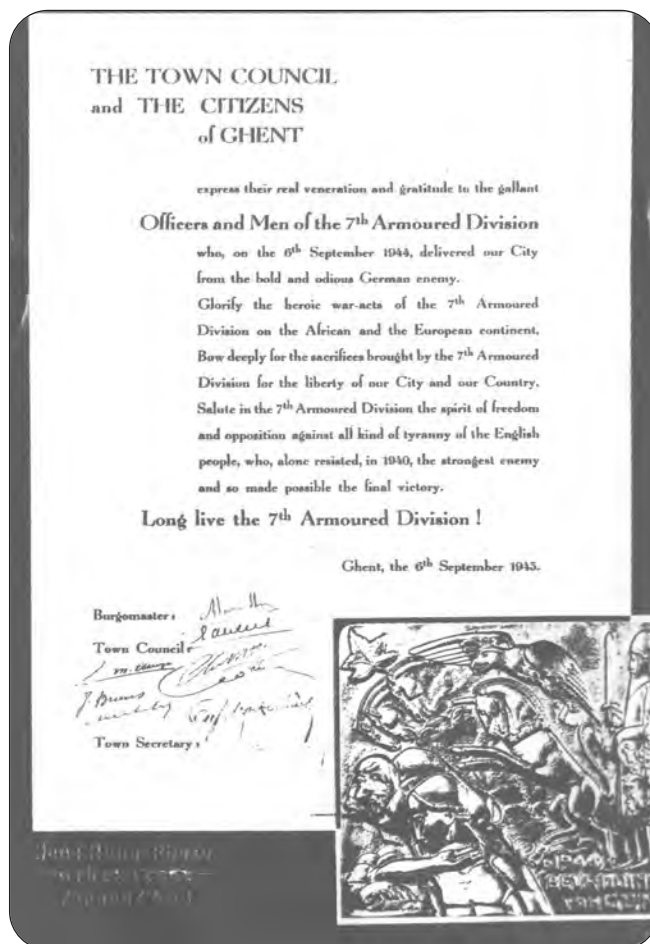 THE TOWN COUNCIL
and THE CITIZENS
of GHENT
express their real veneration and gratitude to the gallant
Officers and Men of the 7th Armoured Division
who, on the 6th September 1944, delivered our City
from the bold and odious German enemy.
Glorify the heroic war-acts of the 7th Armoured
Division on the African and the European continent,
Bow deeply for the sacrifices brought by the 7th Armoured
Division for the liberty of our City and our Country,
Salute in the 7th Armoured Division the spirit of freedom
and opposition against all kind of tyranny of the English
people, who, alone resisted, in 1940, the strongest enemy
and so made possible the final victory.
Long live the 7th Armoured Division !
Ghent, the 6th September 1945.
Burgomaster :
Town Council :
Town Secretary :